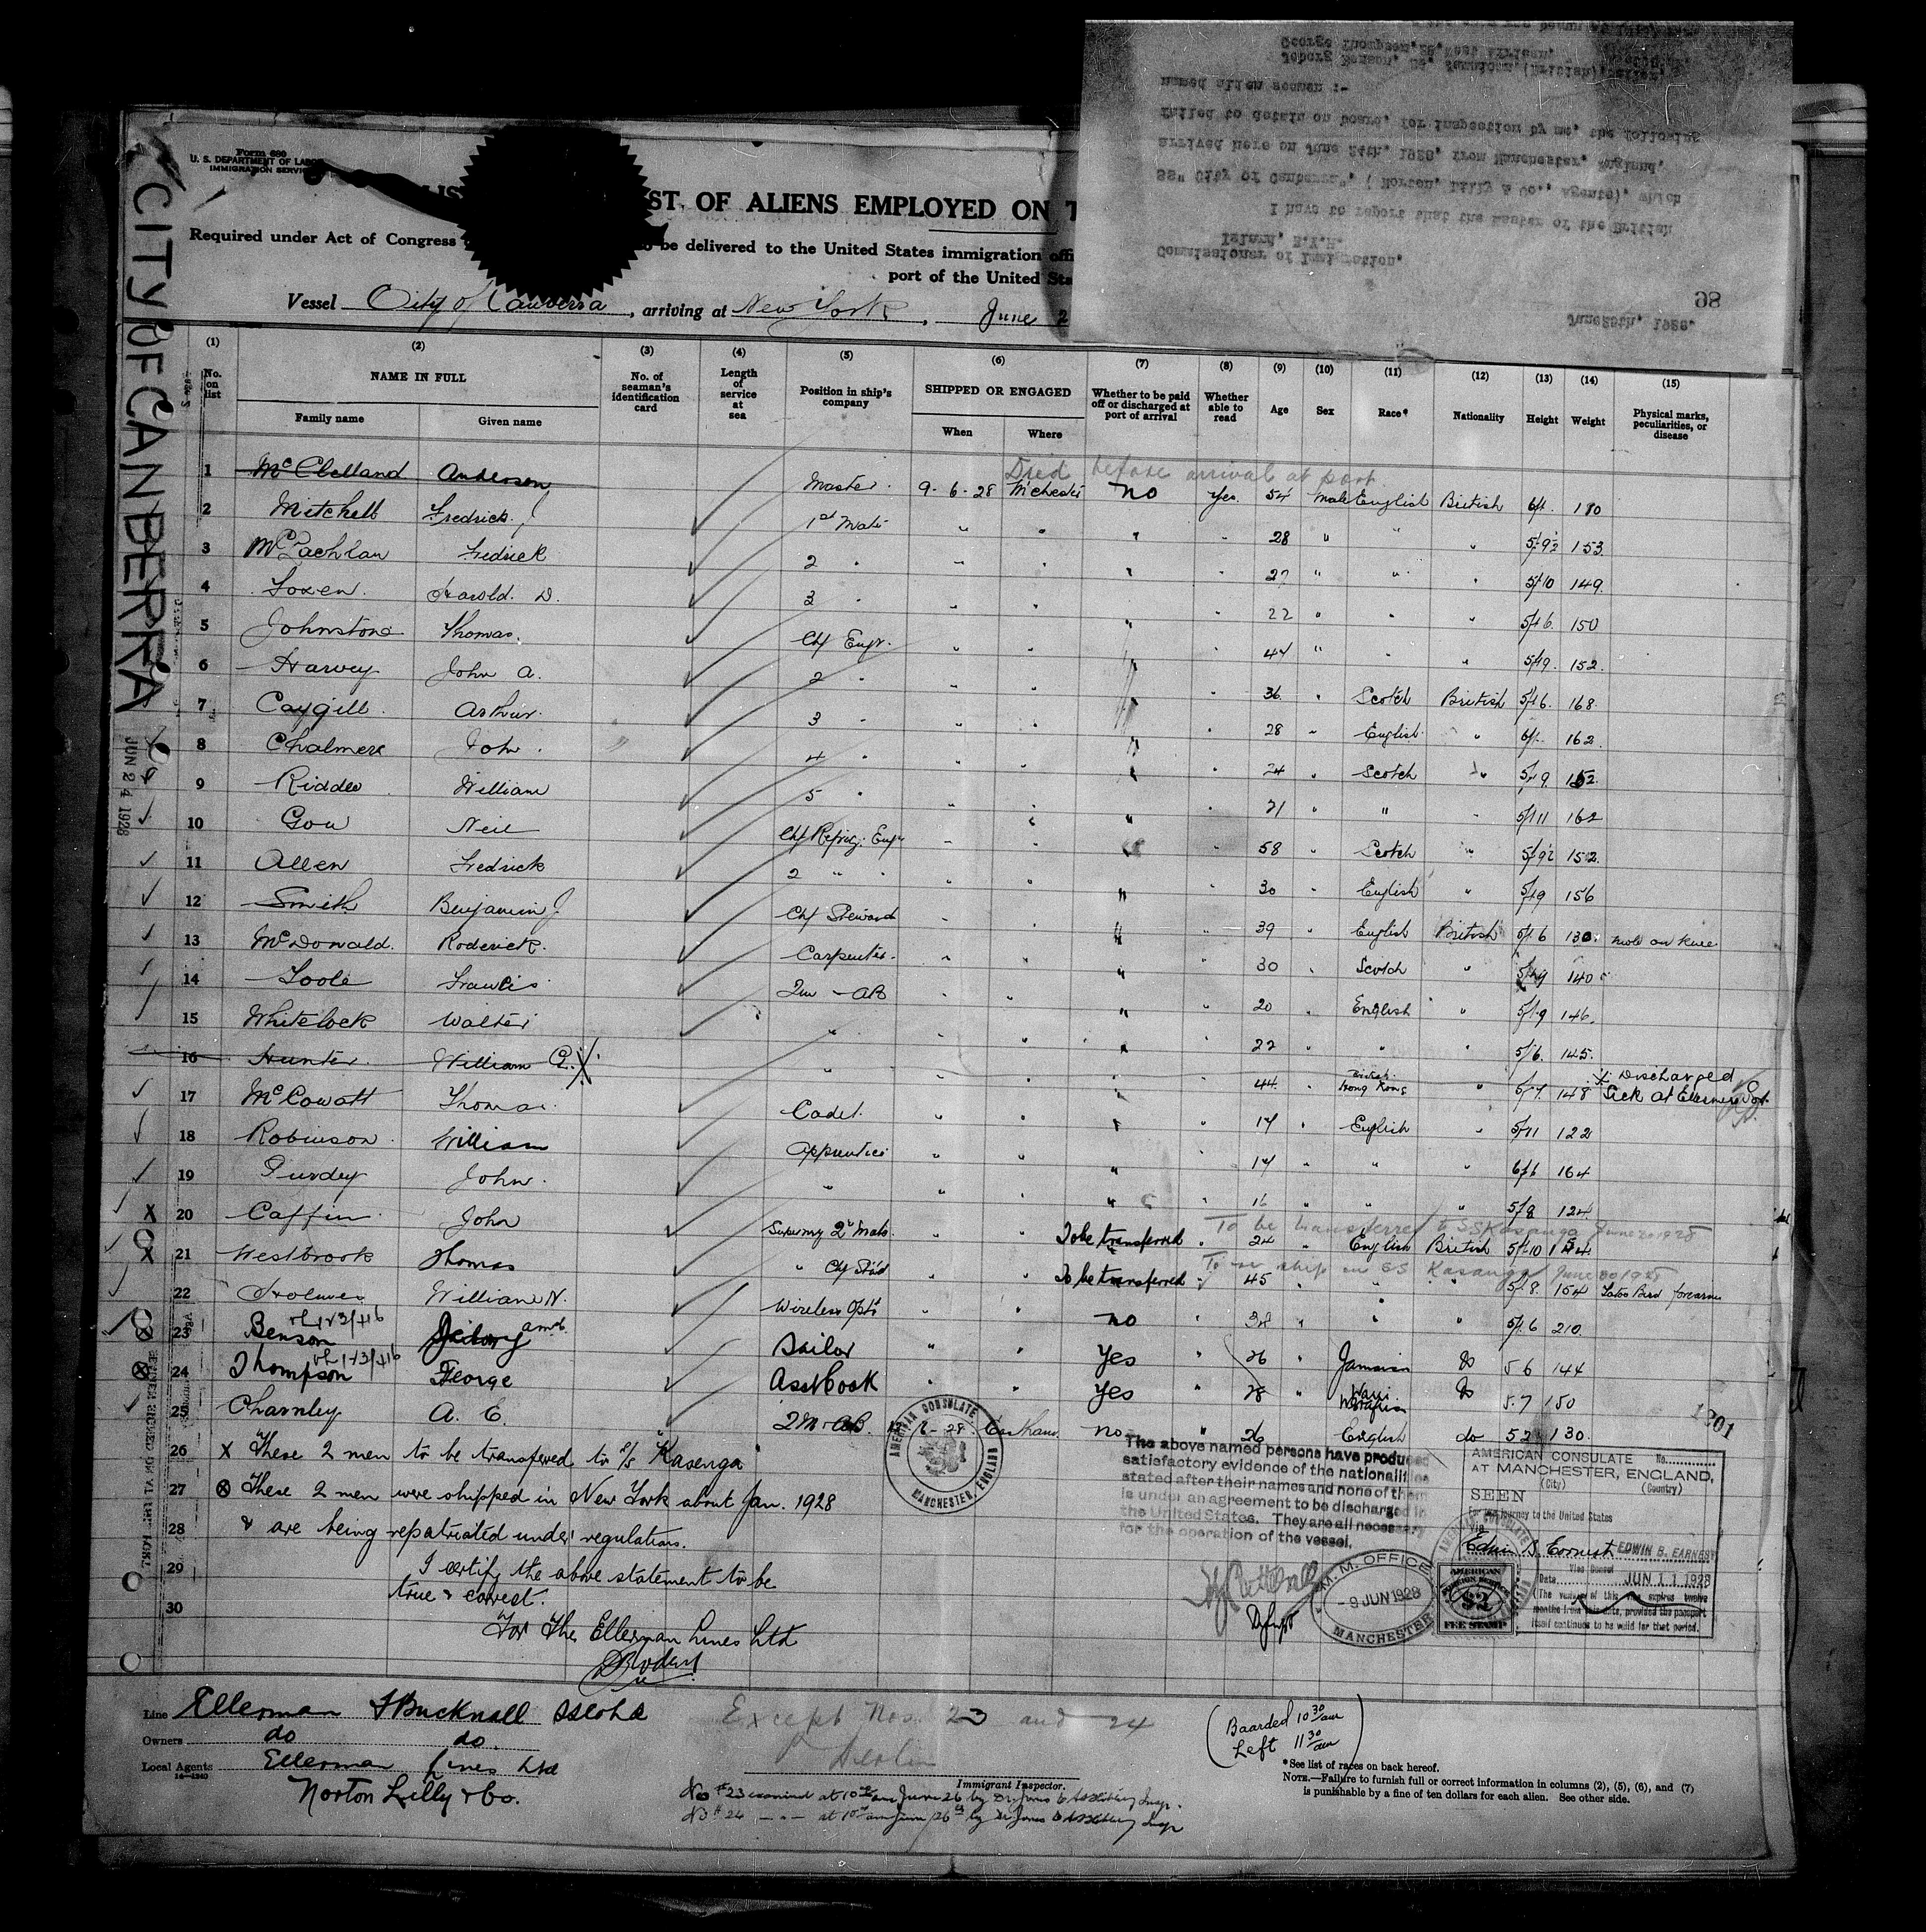 Form 680
U. S. DEPARTMENT OF LABOR
IMMIGRATION SERVICE
LIS ST OF ALIENS EMPLOYED ON T
Required under Act of Congress to be delivered to the United States immigration offi
port of the United Sta
Vessel City of Canberra, arriving at New York, June 2
CITY OF CANBERRA
JUN 24 1928
June 28th, 1928.
98
Commissioner of Immigration,
Island, N.Y.H.
I have to report that the Master of the British
SS" City of Canberra", ( Norton, Lilly & Co., Agents), which
arrived here on June 24th, 1928, from Manchester, England,
failed to detain on board, for inspection by me, the following
named alien seamen :-
George Thompson, 28, West African,
(1) No. on list
(2) NAME IN FULL
Family name Given name
(3) No. of seaman's identification card
(4) Length of service at sea
(5) Position in ship's company
(6) SHIPPED OR ENGAGED
When Where
(7) Whether to be paid off or discharged at port of arrival
(8) Whether able to read
(9) Age
(10) Sex
(11) Race*
(12) Nationality
(13) Height
(14) Weight
(15) Physical marks, peculiarities, or disease
Died before arrival at port
1 McClelland Anderson Master 9-6-28 M'chester no Yes 54 Male English British 6/1 180
2 Mitchell Fredrick 1st Mate " " " " 28 " " " 5/9½ 153
3 McLachlan Fredrick 2 " " " " " 27 " " " 5/10 149
4 Loxen Harold D. 3 " " " " " 22 " " " 5/6 150
5 Johnstone Thomas Chf Engr. " " " " 47 " " " 5/9 152
6 Harvey John A. 2 " " " " " 36 " Scotch British 5/6 168
7 Caygill Arthur 3 " " " " " 28 " English " 6/1 162
8 Chalmers John 4 " " " " " 24 " Scotch " 5/9 152
9 Riddle William 5 " " " " " 21 " " " 5/11 162
10 Gow Neil Chf Refrig. Engr " " " " 58 " Scotch " 5/9½ 152
11 Allen Fredrick 2 " " " " " " 30 " English " 5/9 156
12 Smith Benjamin J. Chf Steward " " " " 39 " English British 5/6 130 mole on knee
13 McDonald Roderick Carpenter " " " " 30 " Scotch " 5/9 140
14 Toole Francis Qm - AB " " " " 20 " English " 5/9 146
15 Whitelock Walter " " " " " 22 " " " 5/6 145
16 Hunter William G. X " " " " " 44 " British Hong Kong " 5/7 148 X Discharged Sick at Ellesmere Port
17 McCowatt Thomas Cadet " " " " 17 " English " 5/11 122
18 Robinson William Apprentice " " " " 17 " " " 6/1 164
19 Purdey John " " " " " 16 " " " 5/8 124
To be transferred to SS Kasenga June 30 1928
20 Caffin John Supernry 2nd Mate " " To be transferred " 24 " English British 5/10 154
To re ship in SS Kasanga June 30 1928
21 Westbrook Thomas " Chf Std " " To be transferred " 45 " " " 5/8 154 Tatoo Bird forearm
22 Holmes William N. Wireless Optr " " no " 38 " " " 5/6 210
23 Benson Sailor " " Yes " 26 " Jamaican do 5 6 144
24 Thompson George Asst Cook " " Yes " 28 " W African do 5.7 150
25 Charnley A. E. QM - AB no " 26 " English do 5 2 130
1201
26 X These 2 men to be transferred to S/S "Kasenga"
27 ⊗ These 2 men were shipped in New York about Jan. 1928
28 & are being repatriated under regulations.
29 I certify the above statement to be
true & correct.
30 For The Ellerman Lines Ltd
AMERICAN CONSULATE
MANCHESTER, ENGLAND
The above named persons have produced
satisfactory evidence of the nationalities
stated after their names and none of them
is under an agreement to be discharged in
the United States. They are all necessary
for the operation of the vessel.
AMERICAN CONSULATE No.
AT MANCHESTER, ENGLAND,
(City) (Country)
SEEN
For the journey to the United States
Via
Edwin B. Earnest EDWIN B. EARNEST
Vice Consul
Date JUN 11 1928
(The validity of this visa expires twelve
months from this date, provided the passport
itself continues to be valid for that period.
M. M. OFFICE
- 9 JUN 1928
MANCHESTER
AMERICAN
FOREIGN SERVICE
$2
FEE STAMP
Line Ellerman & Bucknall SS Co Ld
Owners do do
Local Agents Ellerman Lines Ltd
14-1240
Norton Lilly & Co.
Except Nos. 23 and 24
Immigrant Inspector.
No #23 examined at 10 am June 26 by Dr Jones
No #24 — " — at 10 am June 26th by Dr Jones
(Boarded 10 30 am
Left 11 30 am)
*See list of races on back hereof.
NOTE.—Failure to furnish full or correct information in columns (2), (5), (6), and (7)
is punishable by a fine of ten dollars for each alien. See other side.